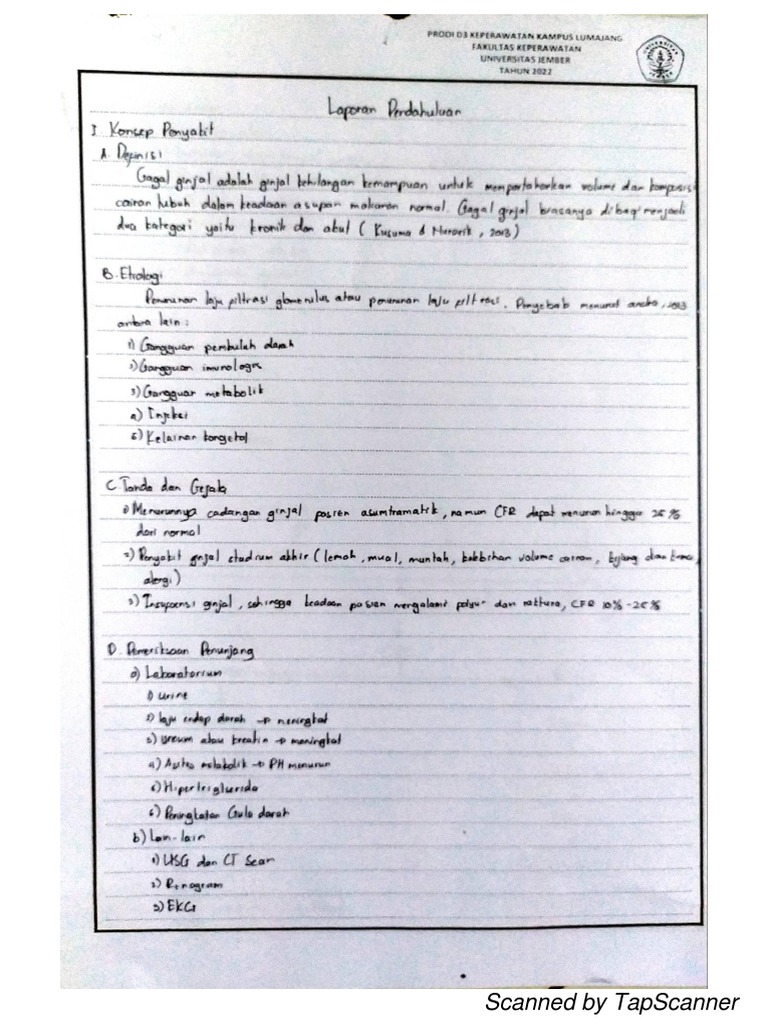 PRODI D3 KEPERAWATAN KAMPUS LUMAJANG
FAKULTAS KEPERAWATAN
UNIVERSITAS JEMBER
TAHUN 2022
UNIVERSITAS JEMBER
Laporan Pendahuluan
I. Konsep Penyakit
A. Definisi
Gagal ginjal adalah ginjal kehilangan kemampuan untuk mempertahankan volume dan komposisi
cairan tubuh dalam keadaan asupan makanan normal. Gagal ginjal biasanya dibagi menjadi
dua kategori yaitu kronik dan akut (Kusuma & Nurarif, 2013)
B. Etiologi
Penurunan laju filtrasi glomerulus atau penurunan laju filtrasi. Penyebab menurut andra, 2013
antara lain :
1) Gangguan pembuluh darah
2) Gangguan imunologis
3) Gangguan metabolik
4) Infeksi
5) Kelainan kongetal
C. Tanda dan Gejala
1) Menurunnya cadangan ginjal pasien asumtramatik, namun CFR dapat menurun hingga 25%
dari normal
2) Penyakit ginjal stadium akhir (lemah, mual, muntah, kelebihan volume cairan, kejang dan
alergi)
3) Insufisensi ginjal, sehingga keadaan pasien mengalami polyur dan nokturo, CFR 10% - 25%
D. Pemeriksaan Penunjang
a) Laboratorium
1) urine
2) laju endap darah → meningkat
3) ureum atau kreatin → meningkat
4) metabolik → PH menurun
5) Hipertriglurida
6) Peningkatan Gula darah
b) Lain-lain
1) USG dan CT Scan
2) Renogram
3) EKG
Scanned by TapScanner